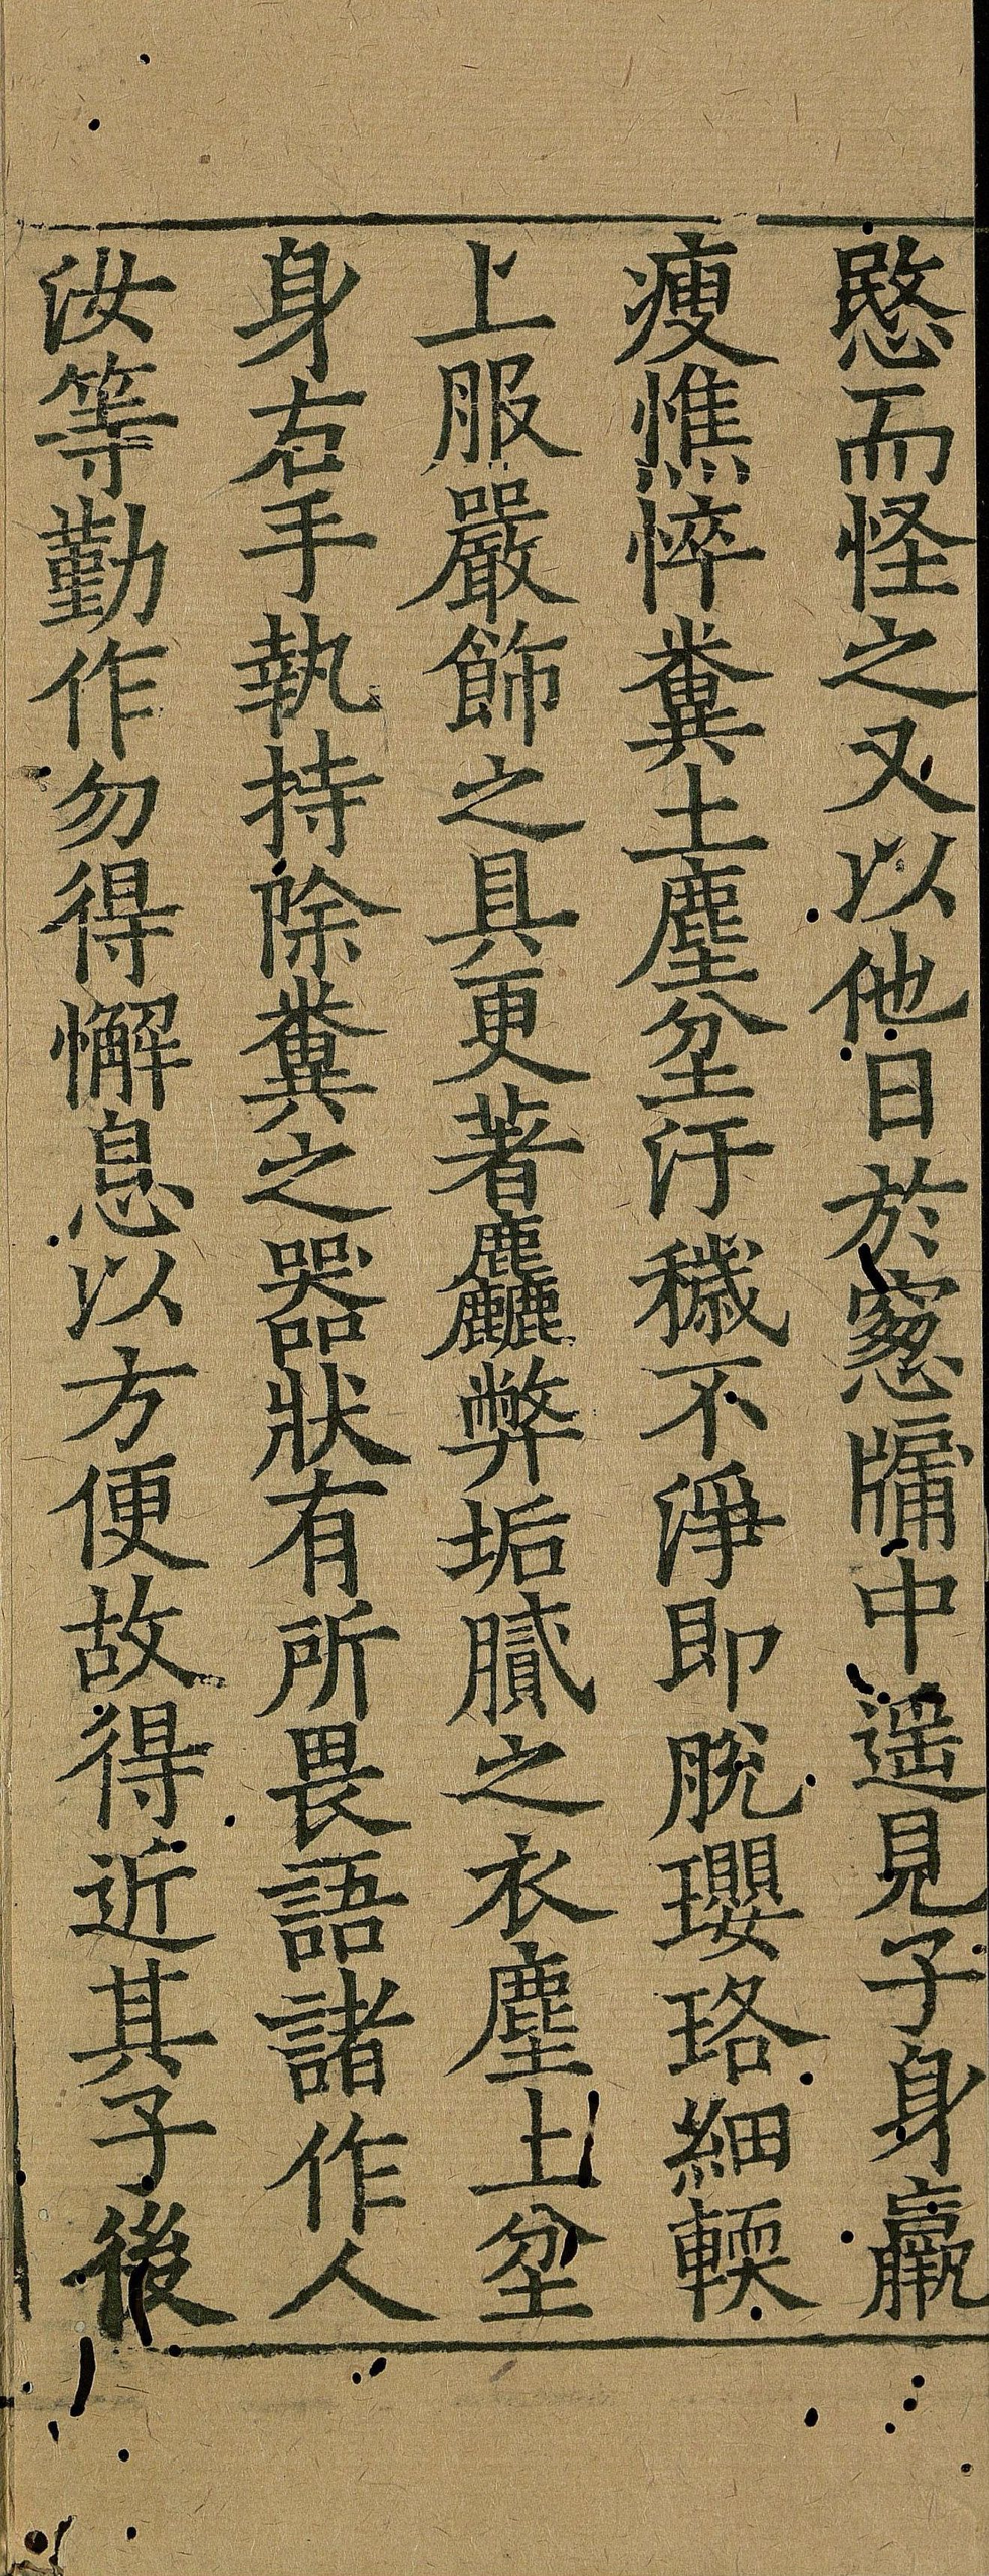 愍而怪之又以他日於窓牖中遥見子身羸
瘦憔悴糞土塵坌汙穢不淨即脫瓔珞細輭
上服嚴飾之具更著麤弊垢膩之衣塵土坌
身右手執持除糞之器狀有所畏語諸作人
汝等勤作勿得懈息以方便故得近其子後